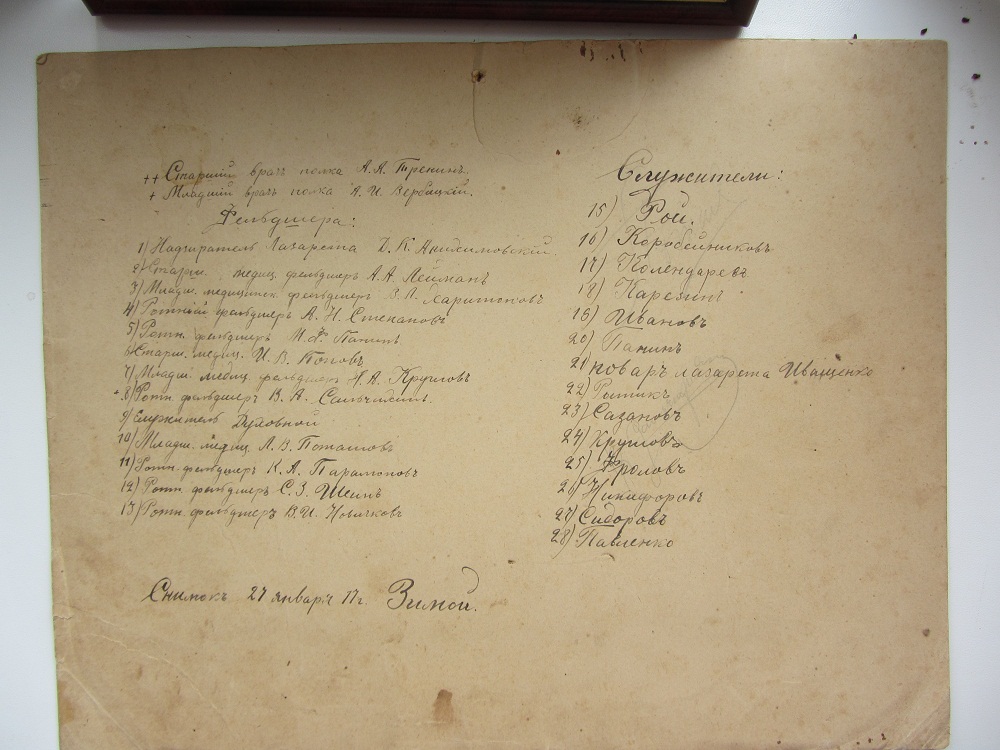 ++ Старший врачъ полка А. А. Тренинъ.
+ Младший врачъ полка А. И. Вербицкій.
Фельдшера:
1) Надзиратель Лазарета К.
2) Старш. медиц. фельдшеръ А. А. Нейманъ
3) Младш. медицинск. фельдшеръ Харитоновъ
4) Ротный фельдшеръ А. Н. Степановъ
5) Ротн. фельдшеръ М. Ф. Панинъ
6) Старш. медиц. И. В. Поповъ
7) Младш. медиц. фельдшеръ Н. А. Кругловъ
+ 8) Ротн. фельдшеръ В. А.
9) Служитель Духовной
10) Младш. медиц. Л. В. Поташовъ
11) Ротн. фельдшеръ К. А. Парамоновъ
12) Ротн. фельдшеръ С. З. Шеинъ
13) Ротн. фельдшеръ В. И. Новичковъ
Служители:
15) Рой.
16) Коробейниковъ
17) Календаревъ
18) Карезинъ
19) Ивановъ
20) Панинъ
21) поваръ лазарета Иващенко
22) Рытикъ
23) Сазановъ
24) Кругловъ
25) Фроловъ
26) Никифоровъ
27) Сидоровъ
28) Павленко
Снимокъ 27 января 17 г. Зимой.